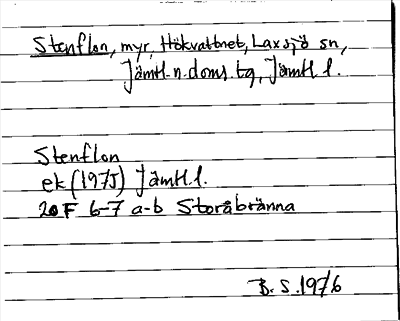 Stenflon, myr, Hökvattnet, Laxsjö sn,
Jämtl. n. doms. tg, Jämtl. l.
Stenflon
ek (1975) Jämtl. l.
20F 6-7 a-b Storåbränna
B. S. 1976